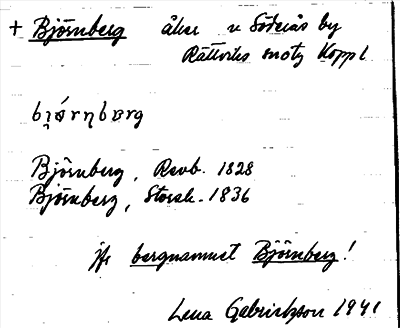 + Björnberg åker v Söderås by
Rättviks snctg Koppl.
bjǿrnbærg
Björnberg, Revb. 1828
Björnberg, Storsk. 1836
jfr bergnamnet Björnberg!
Lena Gabrielsson 1941